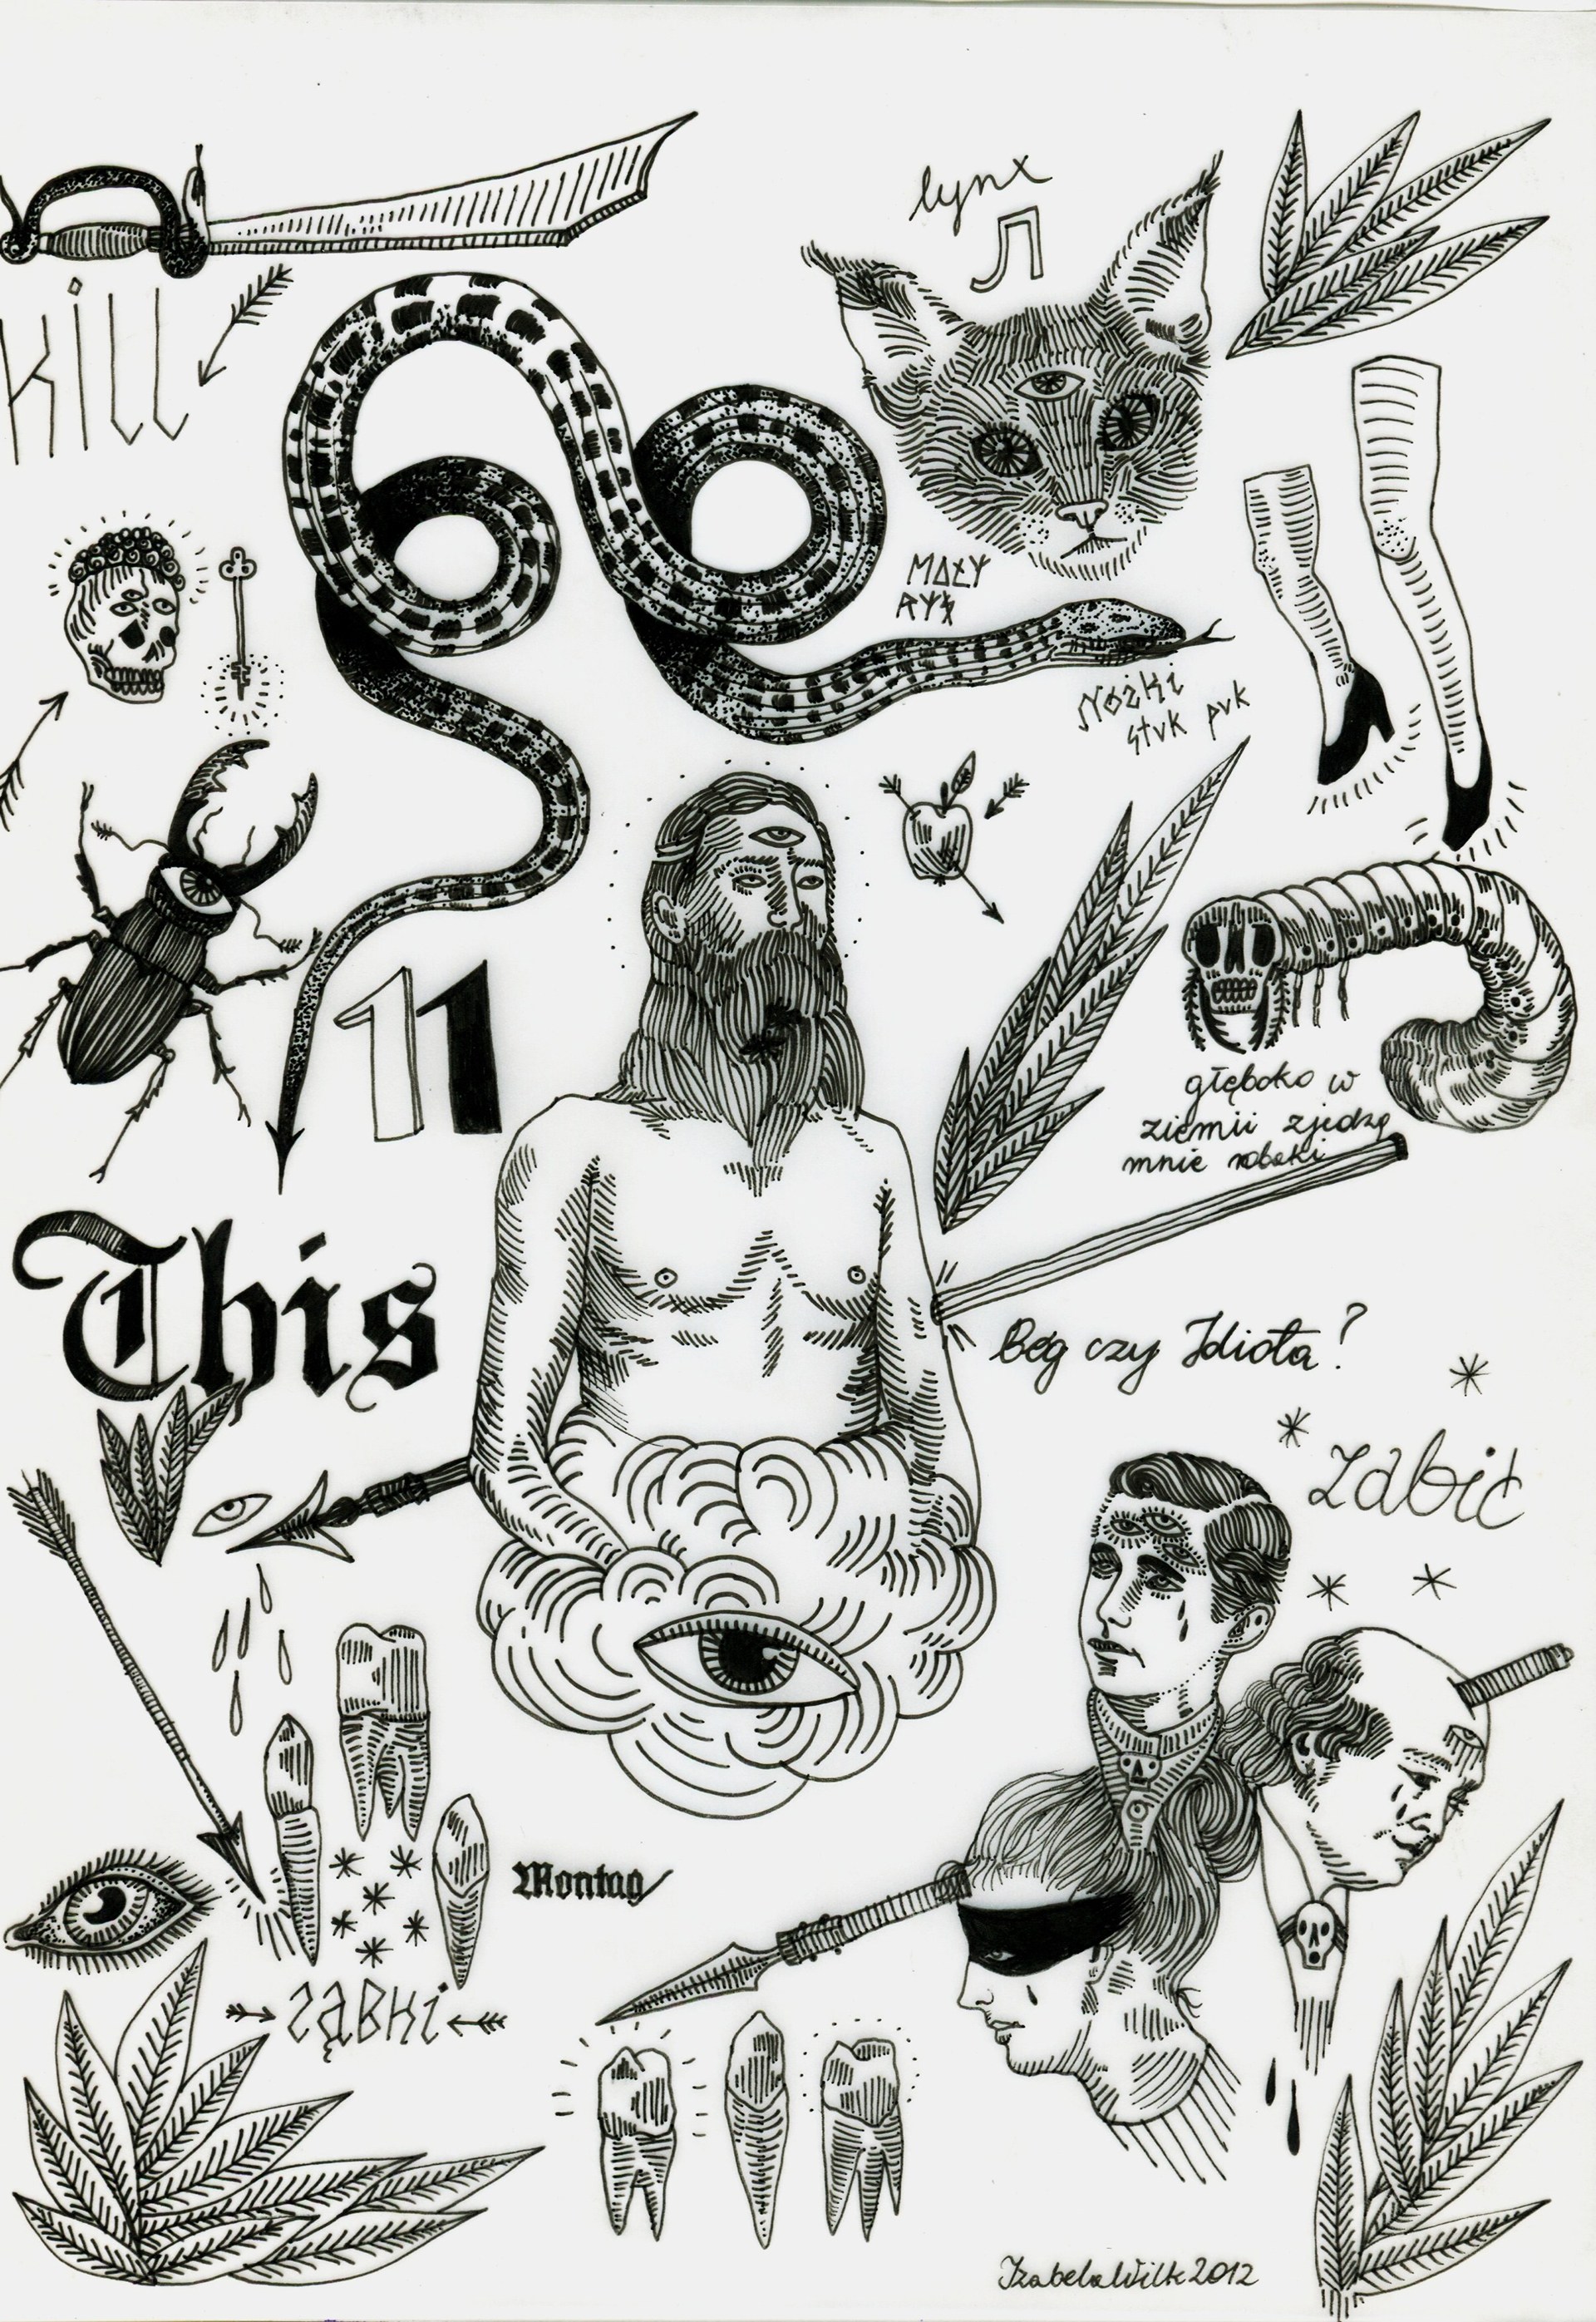 lynx
kill
MAŁY
RYŚ
Nóżki
stuk puk
11
głęboko w
ziemii zjedzą
mnie robaki
This
Bóg czy Idiota?
zabić
Montag
ząbki
Izabela Wilk 2012